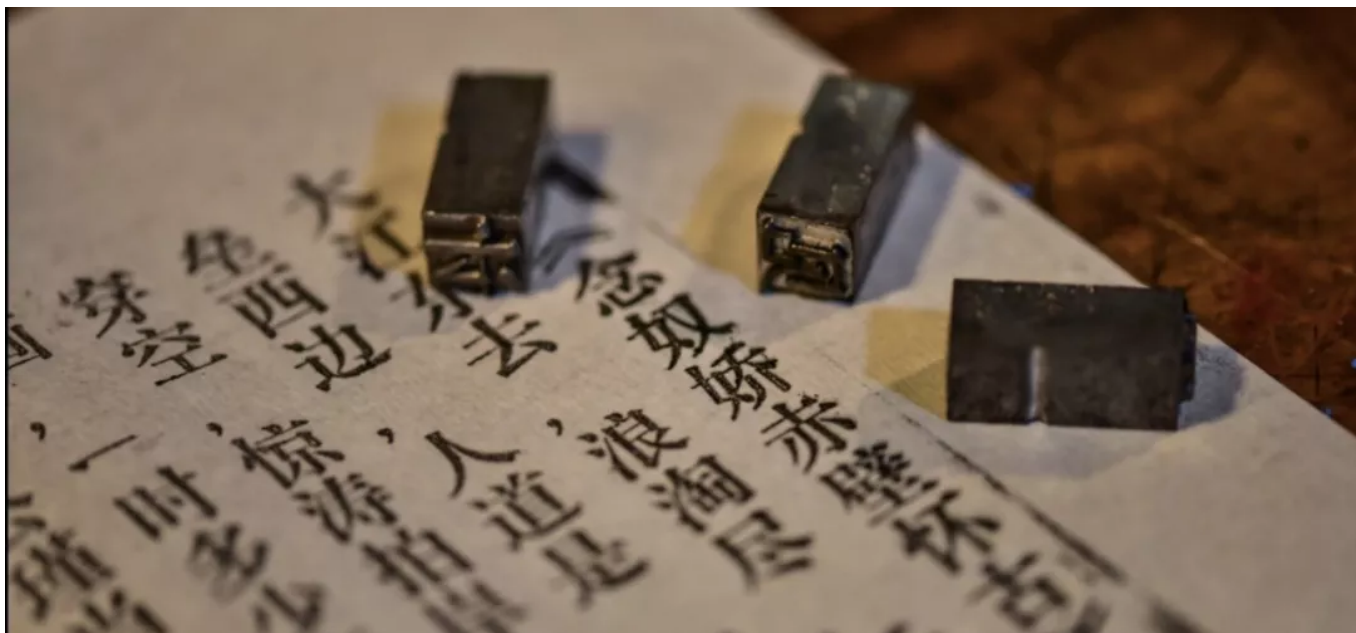 念奴娇赤壁怀古
大江东去，浪淘尽
垒西边，人道是
穿空，惊涛拍岸
画，一时多少
公瑾当